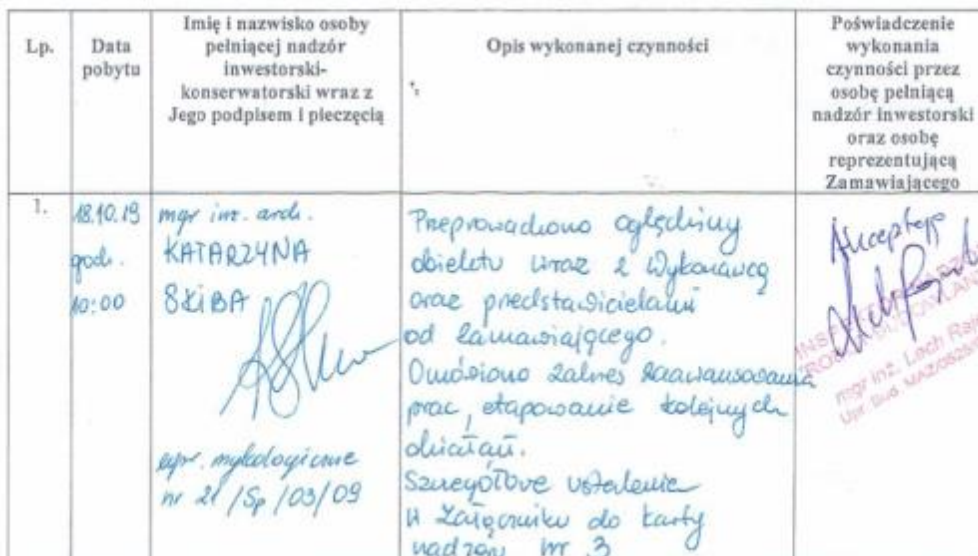 Lp.
Data
pobytu
Imię i nazwisko osoby
pełniącej nadzór
inwestorski-
konserwatorski wraz z
Jego podpisem i pieczęcią
Opis wykonanej czynności
Poświadczenie
wykonania
czynności przez
osobę pełniącą
nadzór inwestorski
oraz osobę
reprezentującą
Zamawiającego
1.
18.10.19
godz.
10:00
mgr inż. arch.
KATARZYNA
SKIBA
upr. mykologiczne
nr 21/Sp/03/09
Przeprowadzono oględziny
obiektu wraz z Wykonawcą
oraz przedstawicielami
od Zamawiającego.
Omówiono zakres zaawansowania
prac, etapowanie kolejnych
działań.
Szczegółowe ustalenia
w Załączniku do karty
nadzoru nr 3
Akceptuję
mgr inż. Lech